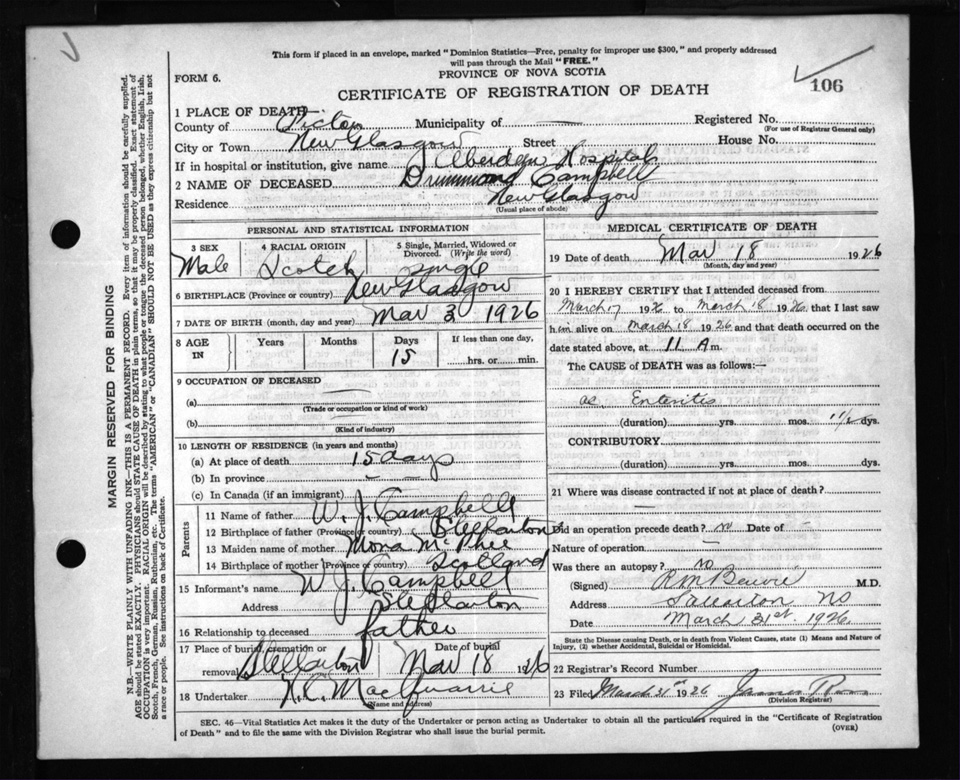 This form if placed in an envelope, marked "Dominion Statistics—Free, penalty for improper use $300," and properly addressed
will pass through the Mail "FREE."
FORM 6.
PROVINCE OF NOVA SCOTIA
106
CERTIFICATE OF REGISTRATION OF DEATH
1 PLACE OF DEATH—
County of Pictou Municipality of — Registered No.
(For use of Registrar General only)
City or Town New Glasgow Street House No.
If in hospital or institution, give name Aberdeen Hospital
2 NAME OF DECEASED Drummond Campbell
Residence New Glasgow
(Usual place of abode)
PERSONAL AND STATISTICAL INFORMATION
3 SEX 4 RACIAL ORIGIN 5 Single, Married, Widowed or Divorced. (Write the word)
Male Scotch single
6 BIRTHPLACE (Province or country) New Glasgow
7 DATE OF BIRTH (month, day and year) Mar 3 1926
8 AGE IN Years Months Days If less than one day,
15 hrs. or min.
9 OCCUPATION OF DECEASED
(a)
(Trade or occupation or kind of work)
(b)
(Kind of industry)
10 LENGTH OF RESIDENCE (in years and months)
(a) At place of death 15 days
(b) In province — —
(c) In Canada (if an immigrant)
Parents
11 Name of father W. J. Campbell
12 Birthplace of father (Province or country) Stellarton
13 Maiden name of mother Mona McPhie
14 Birthplace of mother (Province or country) Scotland
15 Informant's name W J. Campbell
Address Stellarton
16 Relationship to deceased father
17 Place of burial, cremation or removal Stellarton Date of burial Mar 18 1926
18 Undertaker MacQuarrie
(Name and address)
MEDICAL CERTIFICATE OF DEATH
19 Date of death Mar 18 1926
(Month, day and year)
20 I HEREBY CERTIFY that I attended deceased from
March 17 1926 to March 18 1926 that I last saw
him alive on March 18 1926 and that death occurred on
date stated above, at 11 A m
The CAUSE of DEATH was as follows:—
ac Enteritis
(duration) yrs. mos. 1 1/2 dys.
CONTRIBUTORY
(duration) yrs. mos. dys.
21 Where was disease contracted if not at place of death?
—
Did an operation precede death? no Date of —
Nature of operation —
Was there an autopsy? no
(Signed) M.D.
Address NS
Date March 21st. 1926
State the Disease causing Death, or in death from Violent Causes, state (1) Means and Nature of
Injury, (2) whether Accidental, Suicidal or Homicidal.
22 Registrar's Record Number
23 Filed March 21st 1926 James
(Division Registrar)
SEC. 46—Vital Statistics Act makes it the duty of the Undertaker or person acting as Undertaker to obtain all the particulars required in the "Certificate of Registration
of Death" and to file the same with the Division Registrar who shall issue the burial permit.
(OVER)
MARGIN RESERVED FOR BINDING
N.B.—WRITE PLAINLY WITH UNFADING INK—THIS IS A PERMANENT RECORD. Every item of information should be carefully supplied.
AGE should be stated EXACTLY. PHYSICIANS should STATE CAUSE OF DEATH in plain terms, so that it may be properly classified. Exact statement of
OCCUPATION is very important. RACIAL ORIGIN will be described by stating to what people or tongue the deceased person belonged, whether English, Irish,
Scotch, French, German, Russian, Ruthenian, etc. The terms "AMERICAN" or "CANADIAN" SHOULD NOT BE USED as they express citizenship but not
a race or people. See instructions on back of Certificate.